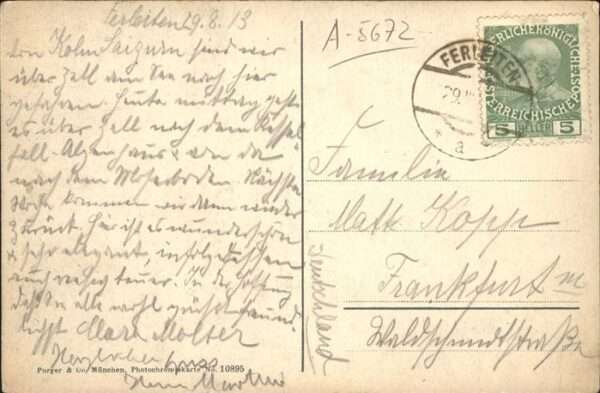 Ferleiten 29.8.13
Von Kolm Saigurn sind wir
über Zell am See nach hier
gefahren. Heute mittag geht
es über Zell nach dem Kessel
fall-Alpenhaus & von da
nach dem Moserboden Nächste
Woche kommen wir dann wieder
zurück. Hier ist es wunderschön
& sehr elegant, infolgedessen
auch teuer. In der Hoffnung
daß Sie alle wohl grüßt freund-
lichst Clara Molter
Herzlichen Gruss
Porger & Co. München, Photochromiekarte No. 10895
A-5672
FERLEITEN
29.
a
KAISERLICHE KÖNIGLICHE
ÖSTERREICHISCHE POST
5 HELLER 5
Familie
Matt. Kopp
Frankfurt M
Waldschmidtstraße
Deutschland